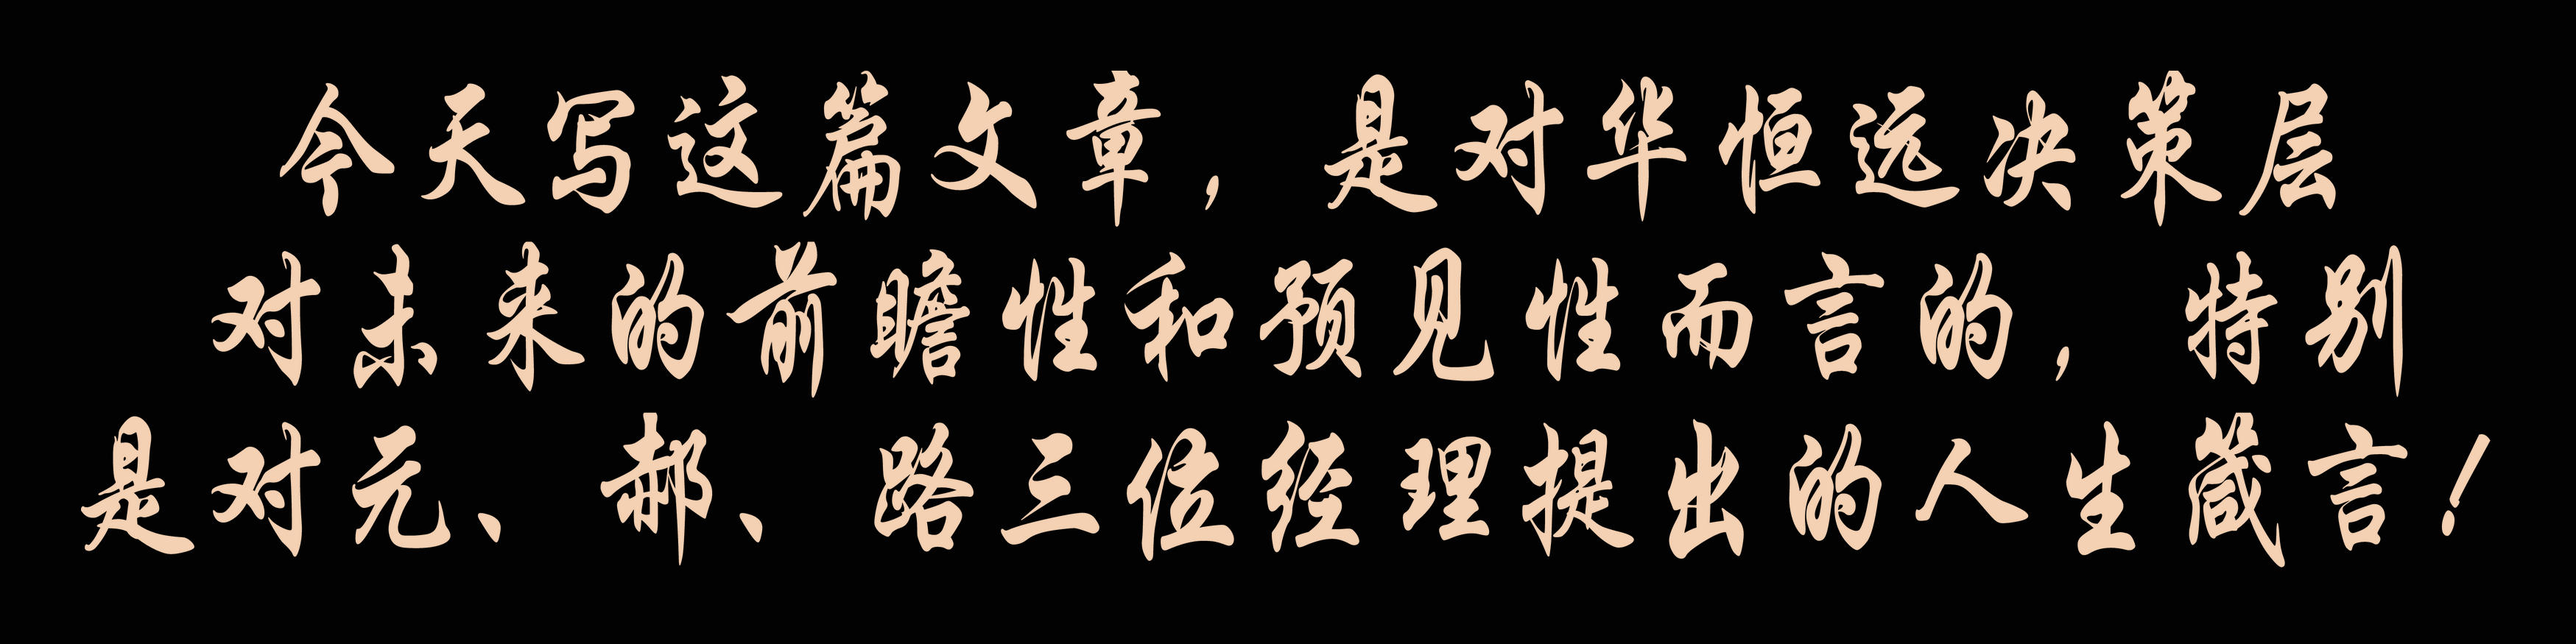 今天写这篇文章，是对华恒远决策层
对未来的前瞻性和预见性而言的，特别
是对元、郝、路三位经理提出的人生箴言！